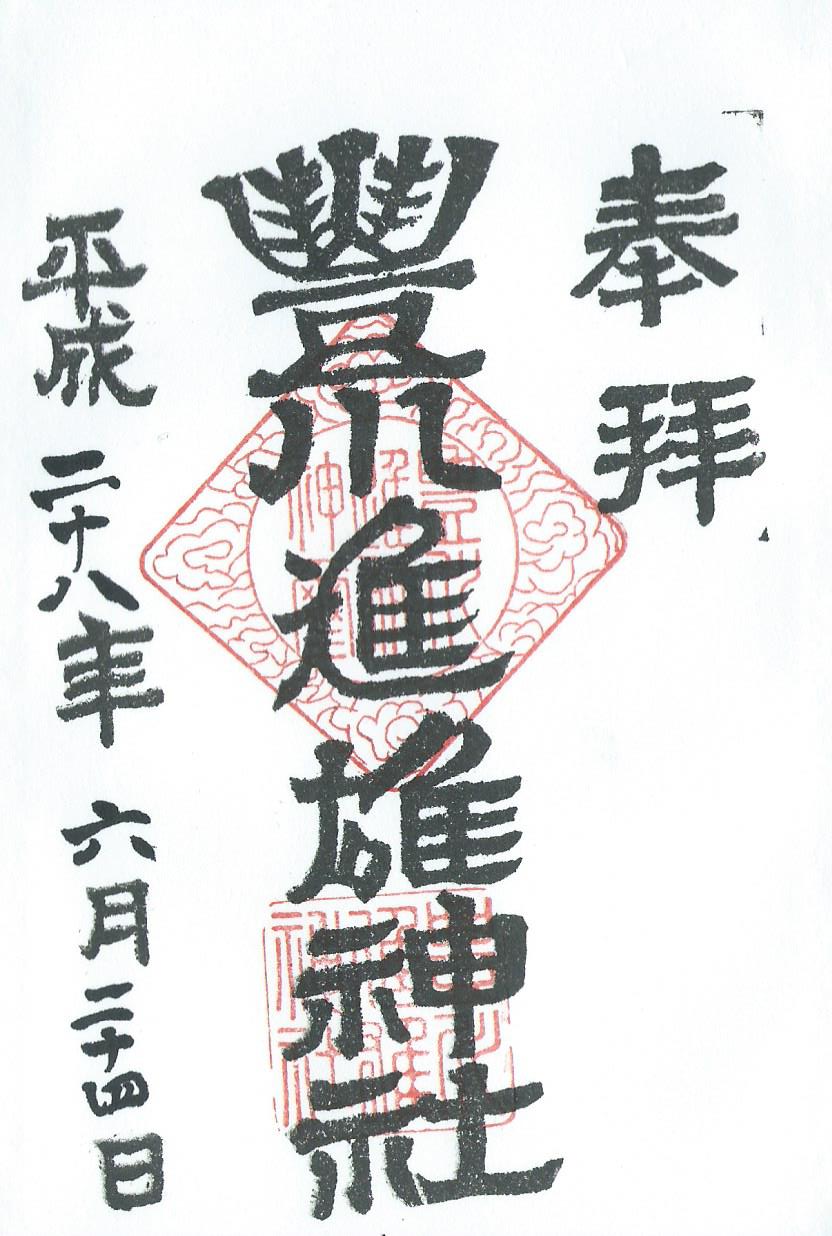 奉拝
豊川進雄神社
平成二十八年六月二十四日